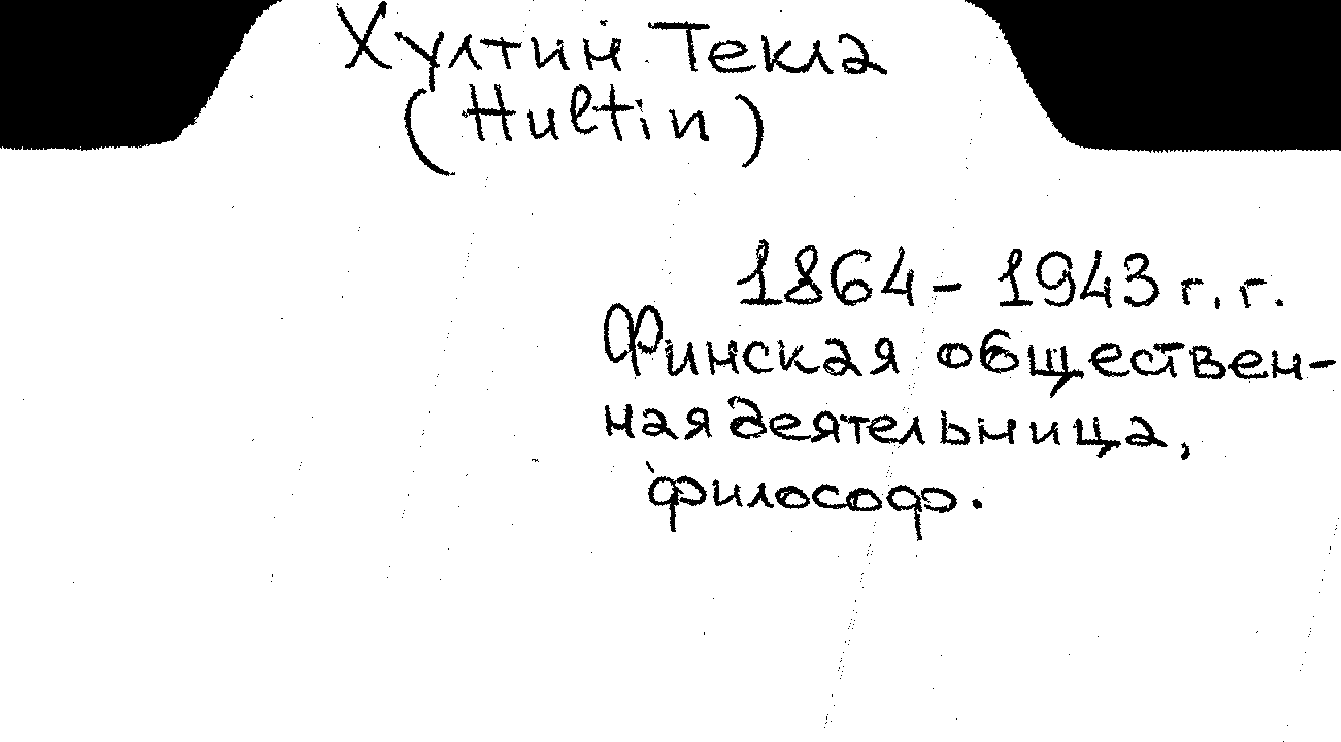 Хултин Текла
(Hultin)
1864 - 1943 г. г.
Финская обществен-
ная деятельница,
философ.